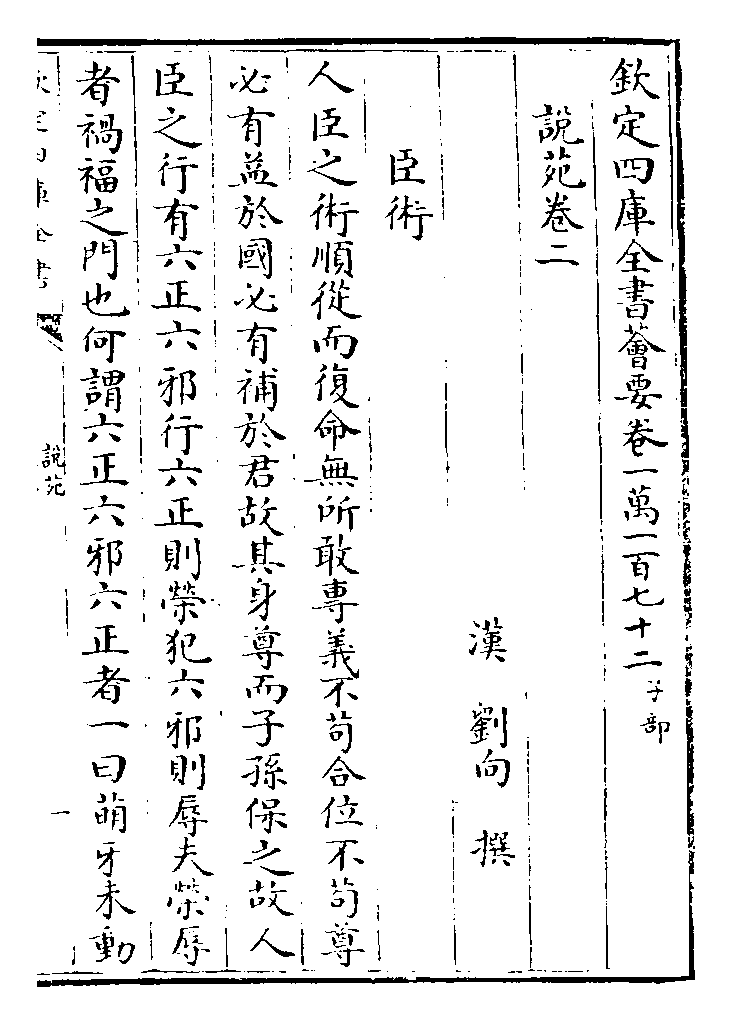 欽定四庫全書薈要卷一萬一百七十二子部
說苑卷二
漢 劉向 撰
臣術
人臣之術順從而復命無所敢專義不苟合位不苟尊
必有益於國必有補於君故其身尊而子孫保之故人
臣之行有六正六邪行六正則榮犯六邪則辱夫榮辱
者禍福之門也何謂六正六邪六正者一曰萌牙未動
欽定四庫全書
說苑
一